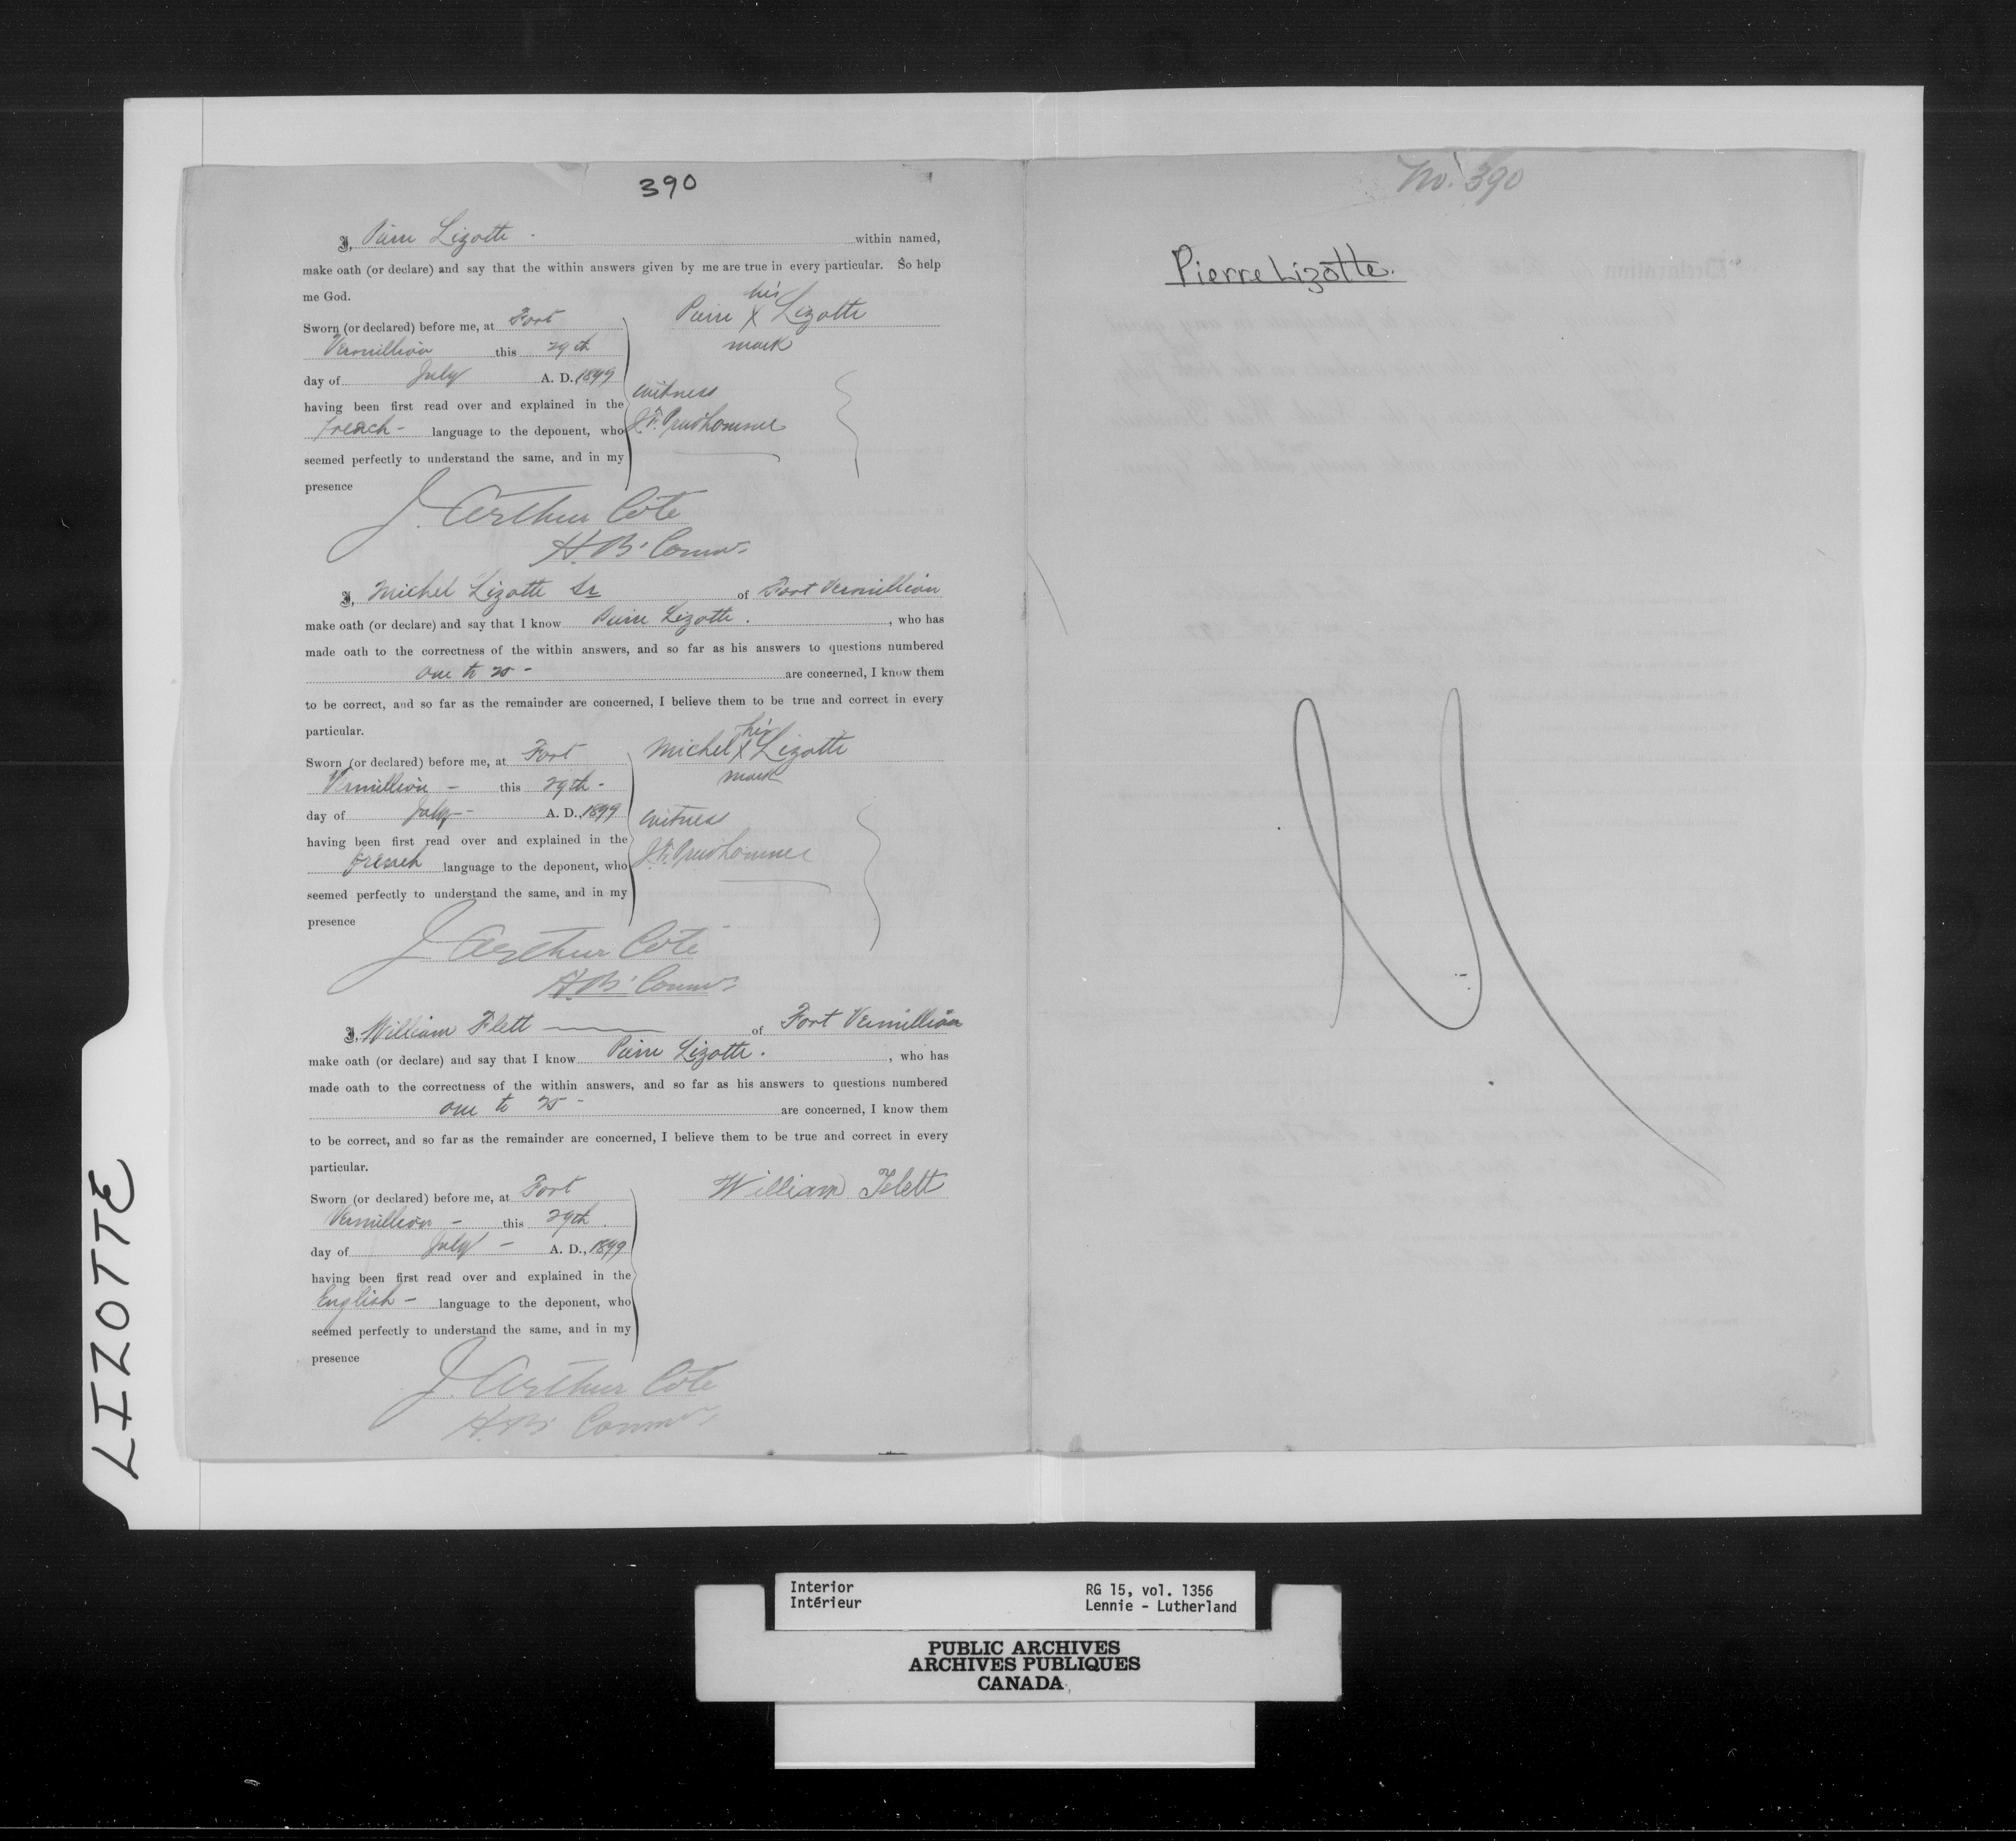 390
I, Pierre Lizotte - within named,
make oath (or declare) and say that the within answers given by me are true in every particular. So help
me God.
Sworn (or declared) before me, at Fort
Vermillion this 29th
day of July A. D., 1899
having been first read over and explained in the
French - language to the deponent, who
seemed perfectly to understand the same, and in my
presence
his
Pierre X Lizotte
mark
witness
J. F. Prudhomme
J. Arthur Coté
H. B. Commr.
I, Michel Lizotte Sr of Fort Vermillion
make oath (or declare) and say that I know Pierre Lizotte. , who has
made oath to the correctness of the within answers, and so far as his answers to questions numbered
one to 25 - are concerned, I know them
to be correct, and so far as the remainder are concerned, I believe them to be true and correct in every
particular.
Sworn (or declared) before me, at Fort
Vermillion - this 29th -
day of July - A. D., 1899
having been first read over and explained in the
French language to the deponent, who
seemed perfectly to understand the same, and in my
presence
his
Michel X Lizotte
mark
witness
J. F. Prudhomme
J. Arthur Coté
H. B. Commr.
I, William Flett of Fort Vermillion
make oath (or declare) and say that I know Pierre Lizotte. , who has
made oath to the correctness of the within answers, and so far as his answers to questions numbered
one to 25 - are concerned, I know them
to be correct, and so far as the remainder are concerned, I believe them to be true and correct in every
particular.
Sworn (or declared) before me, at Fort
Vermillion - this 29th.
day of July - A. D., 1899
having been first read over and explained in the
English - language to the deponent, who
seemed perfectly to understand the same, and in my
presence
William Flett
J. Arthur Coté
H. B. Commr.
No. 390
Pierre Lizotte.
LIZOTTE
Interior
Intérieur
RG 15, vol. 1356
Lennie - Lutherland
PUBLIC ARCHIVES
ARCHIVES PUBLIQUES
CANADA